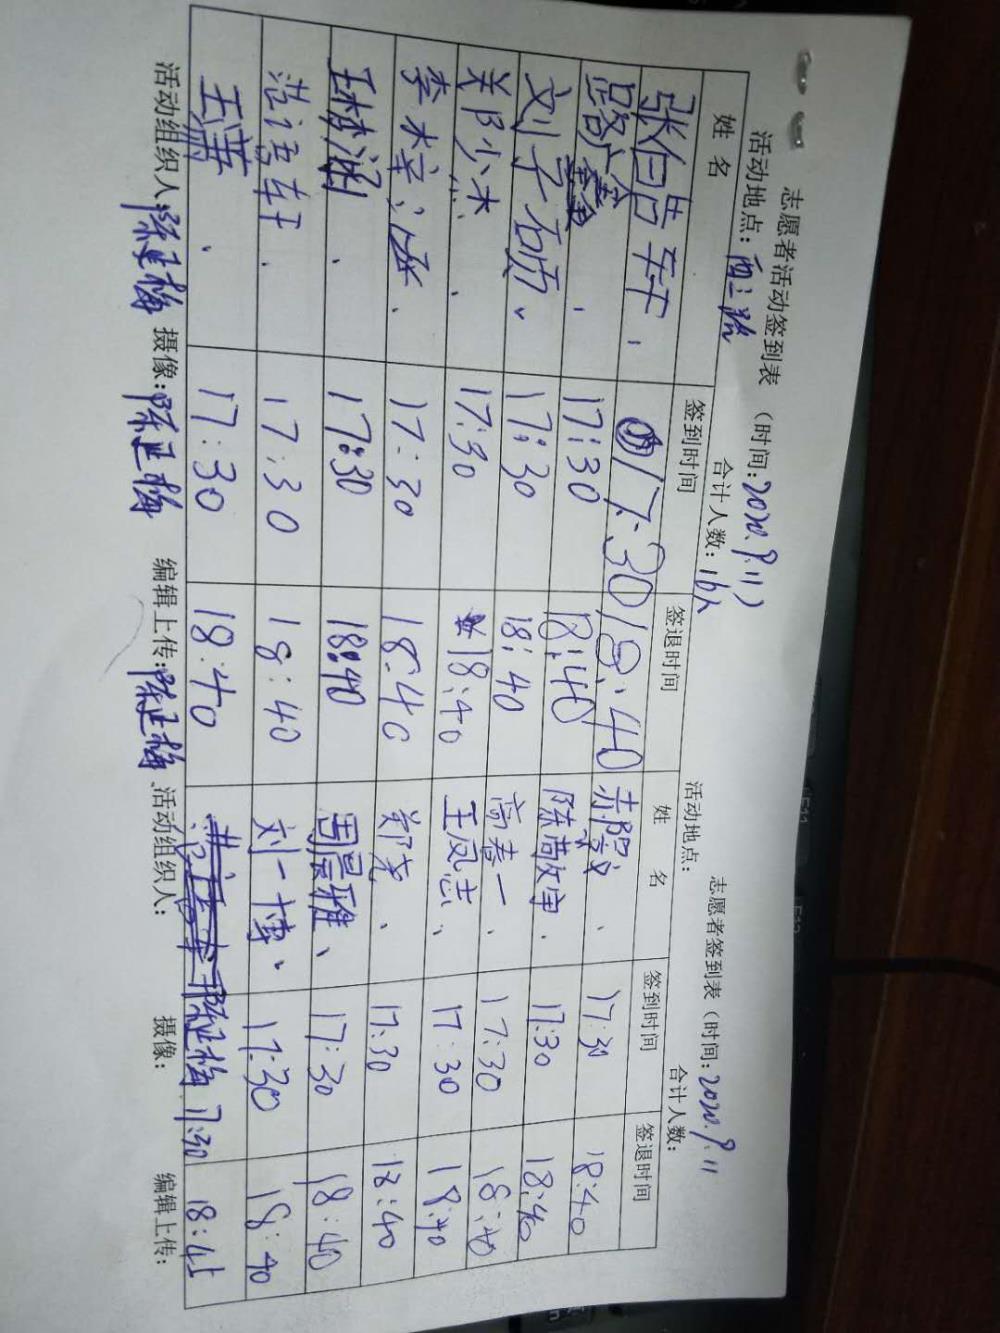 志愿者活动签到表（时间:2020.9.11）
活动地点: 合计人数: 16人
姓 名 签到时间 签退时间
17:30 18:40
17:30 18:40
刘子硕 17:30 18:40
关郎少杰 17:30 18:40
李梓涵 17:30 18:40
王梓涵 17:30 18:40
浩语轩 17:30 18:40
王潇 17:30 18:40
活动组织人:陈延梅 摄像:陈延梅 编辑上传:陈延梅
志愿者签到表（时间:2020.9.11
活动地点: 合计人数:
姓 名 签到时间 签退时间
17:30 18:40
陈敬宇 17:30 18:40
高春一 17:30 18:40
王凤志 17:30 18:40
郑尧 17:30 18:40
周晨雅 17:30 18:40
刘一博 17:30 18:40
陈延梅 17:30 18:45
活动组织人: 摄像: 编辑上传: